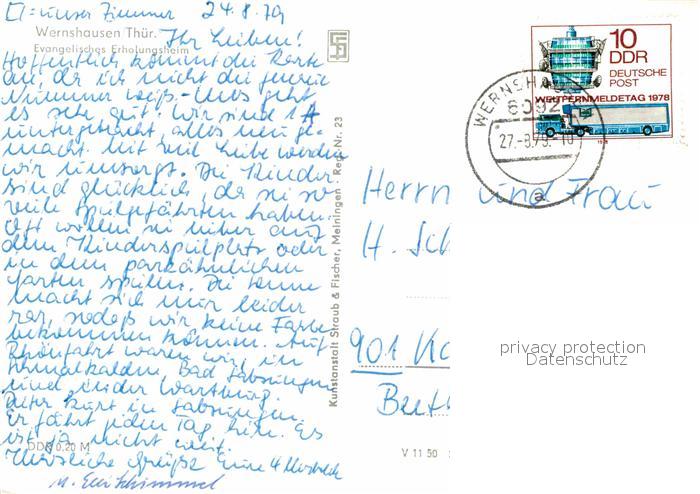 □ = unser Zimmer 24.8.79
Wernshausen Thür.
Evangelisches Erholungsheim
Ihr Lieben!
Hoffentlich kommt die Karte
an, da ich nicht die genaue
Nummer weiß. Uns geht
es sehr gut. Wir sind 1A
untergebracht, alles neu ge-
macht. Mit viel Liebe werden
wir umsorgt. Die Kinder
sind glücklich, da sie so
viele Spielgefährten haben.
Oft wollen sie lieber auf
dem Kinderspielplatz oder
in dem parkähnlichen
Garten spielen. Die Sonne
macht sich nur leider
rar, sodaß wir keine Farbe
bekommen können. Auf
Rhönfahrt waren wir, in
Schmalkalden, Bad Salzungen
und in der Wartburg.
Peter kurt in Salzungen.
Er fährt jeden Tag hin. Es
ist ja nicht weit.
Herzliche Grüße Eure 4
DDR 0,20 M
Kunstanstalt Straub & Fischer, Meiningen - Reg.-Nr. 23
V 11 50
10
DDR
DEUTSCHE
POST
WELTFERNMELDETAG 1978
WERNSHA
6092
27.-8.79.-10
a
Herrn und Frau
H. Sch
901 Ka
Beet
privacy protection
Datenschutz